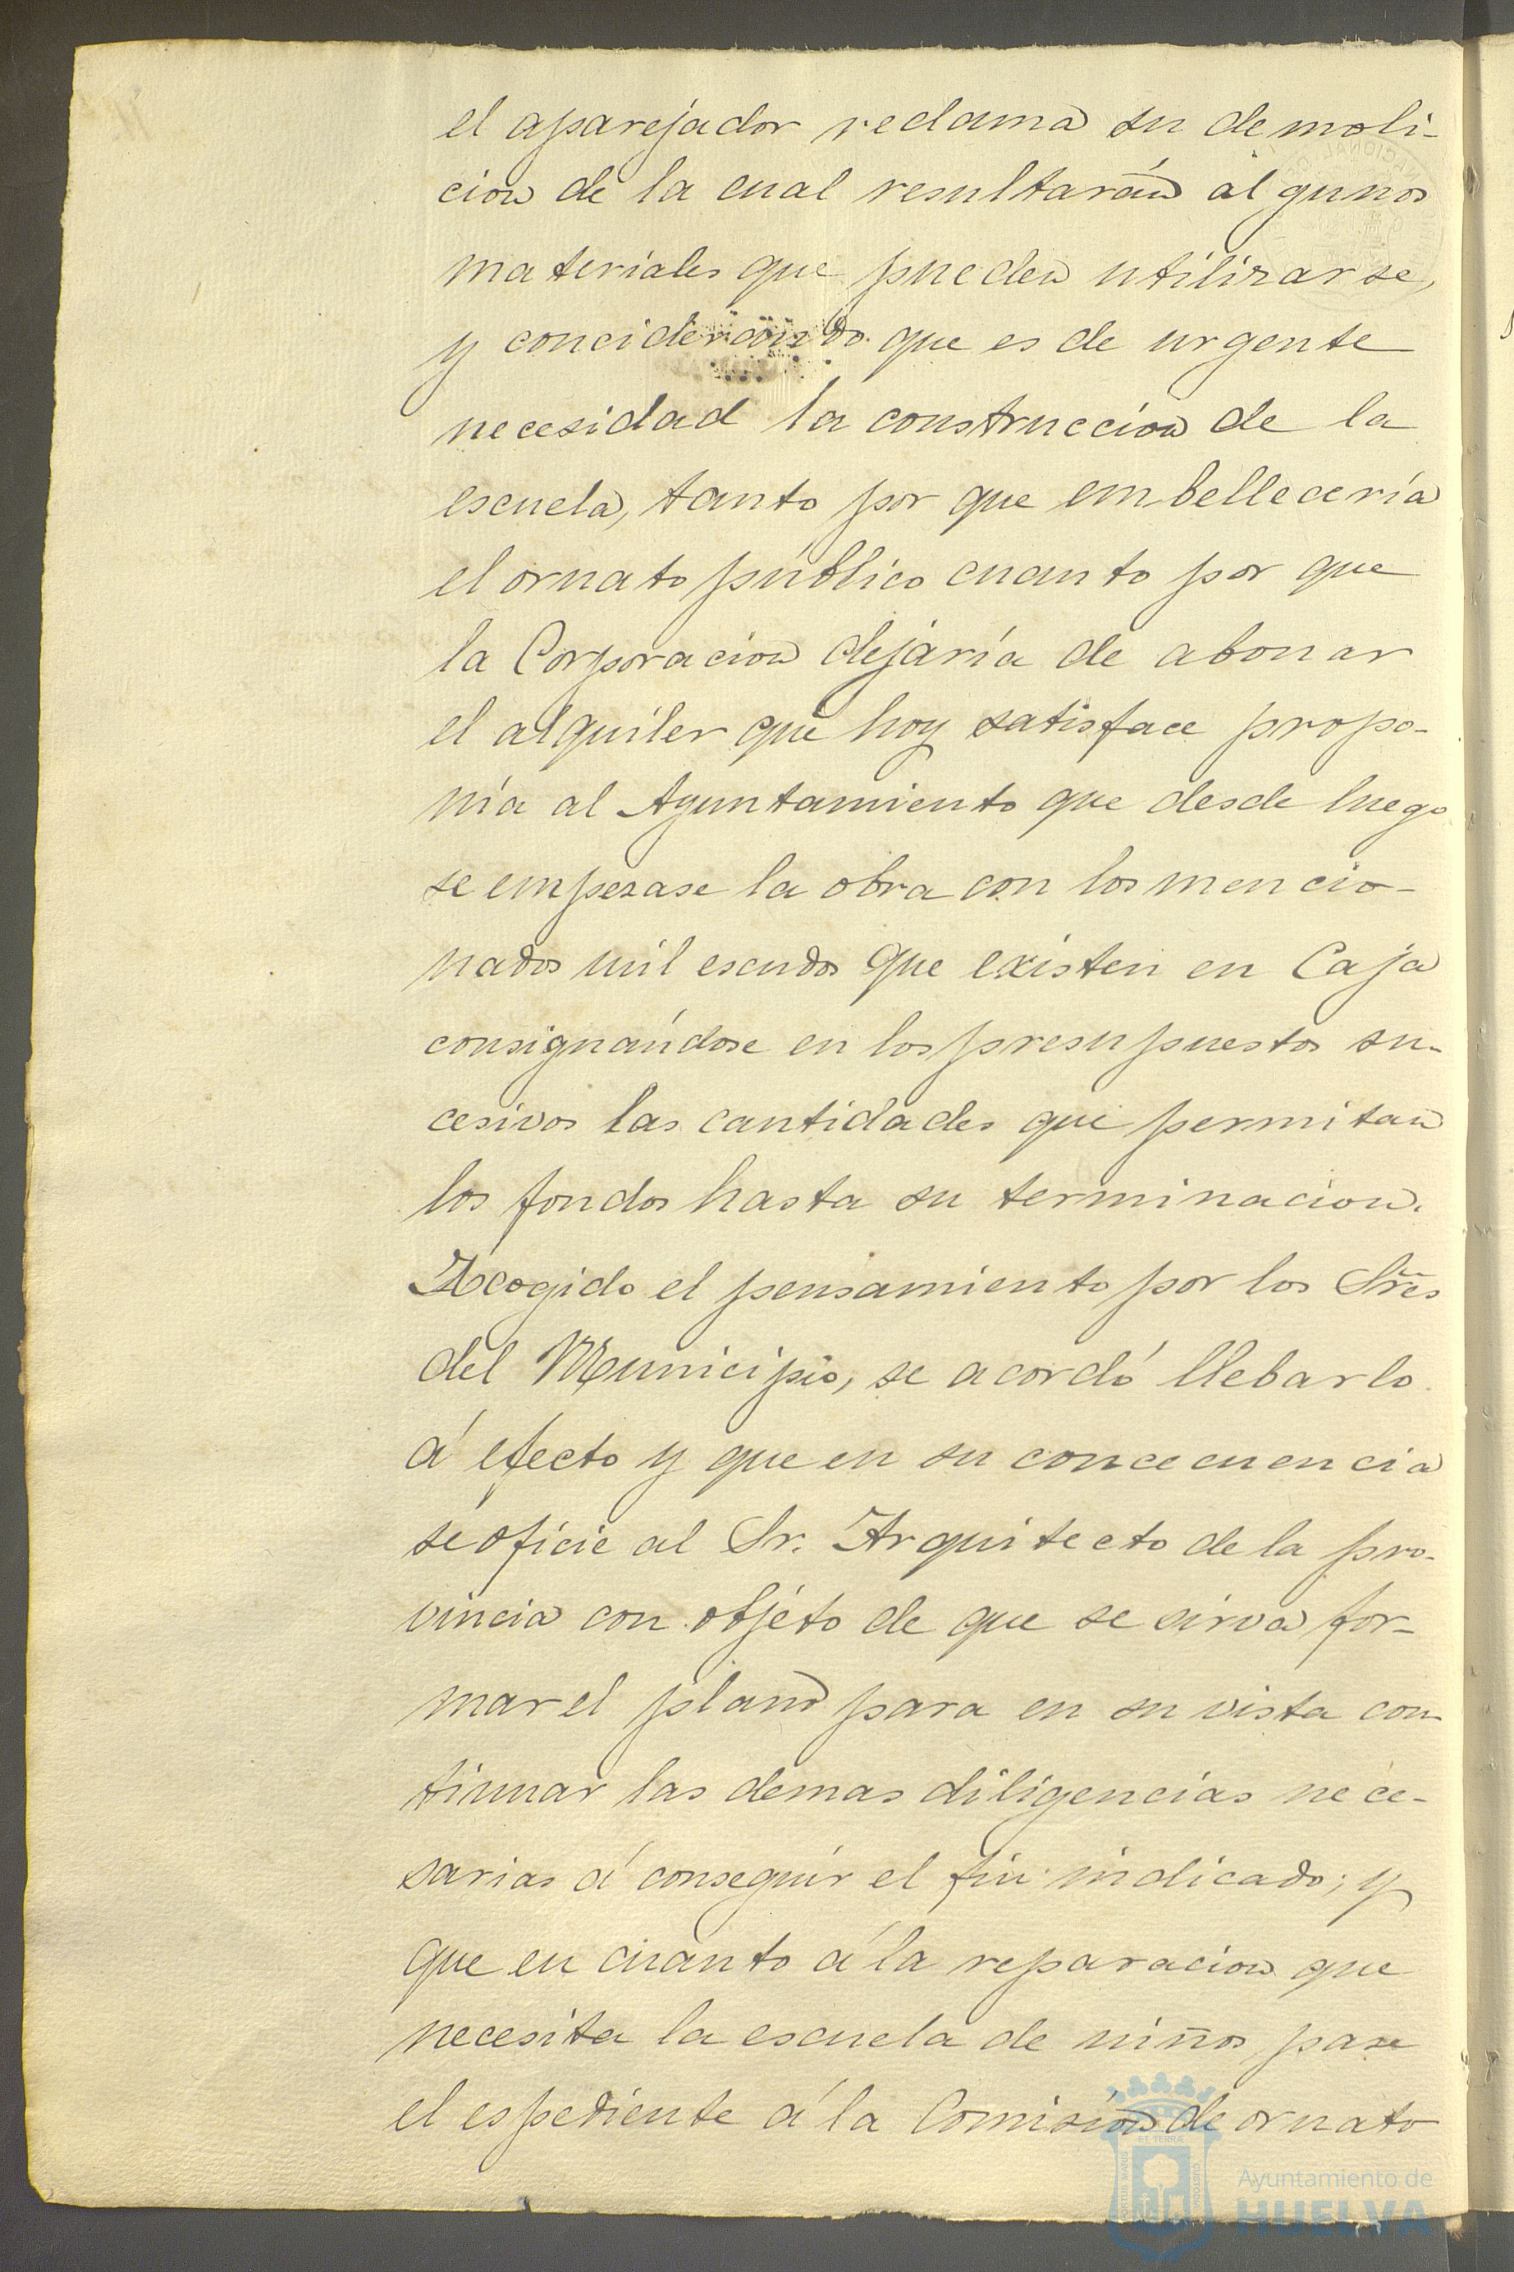 el aparejador reclama su demoli-
cion de la cual resultarán algunos
materiales que pueden utilizarse,
y conciderando que es de urgente
necesidad la construccion de la
escuela, tanto por que embelleceria
el ornato público cuanto por que
la Corporacion dejaría de abonar
el alquiler que hoy satisface propo-
nía al Ayuntamiento que desde luego
se empezase la obra con los mencio-
nados mil escudos que existen en Caja
consignándose en los presupuestos su-
cesivos las cantidades que permitan
los fondos hasta su terminacion.
Acogido el pensamiento por los Sres
del Municipio, se acordó llebarlo
á efecto y que en su concecuencia
se oficie al Sr. Arquitecto de la pro-
vincia con objeto de que se sirva for-
mar el plano para en su vista con-
tinuar las demas diligencias nece-
sarias á conseguir el fin indicado; y
que en cuanto á la reparacion que
necesita la escuela de niños, pase
el espediente á la Comision de ornato
Ayuntamiento de
HUELVA